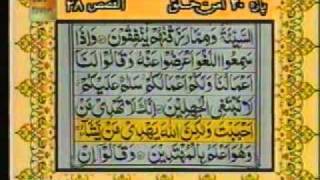 پارہ ۲۰ امن خلق القصص ۲۸
السَّيِّئَةَ وَمِمَّا رَزَقْنٰهُمْ يُنْفِقُوْنَ ۝ وَاِذَا
سَمِعُوا اللَّغْوَ اَعْرَضُوْا عَنْهُ وَقَالُوْا لَنَآ
اَعْمَالُنَا وَلَكُمْ اَعْمَالُكُمْ سَلٰمٌ عَلَيْكُمْ
لَا نَبْتَغِى الْجٰهِلِيْنَ ۝ اِنَّكَ لَا تَهْدِىْ مَنْ
اَحْبَبْتَ وَلٰكِنَّ اللّٰهَ يَهْدِىْ مَنْ يَّشَآءُ
وَهُوَ اَعْلَمُ بِالْمُهْتَدِيْنَ ۝ وَقَالُوْٓا اِنْ